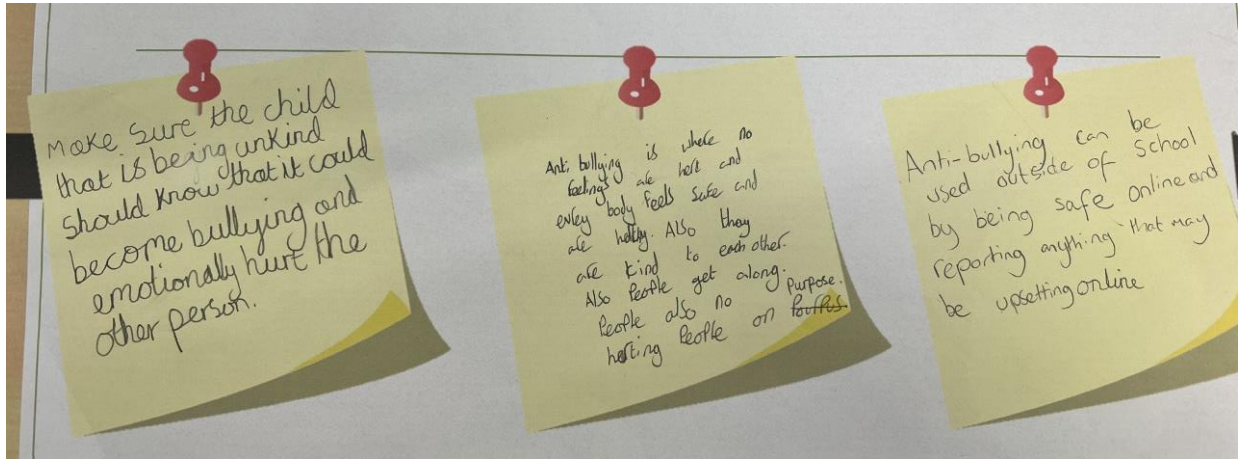 Make sure the child
that is being unkind
should know that it could
become bullying and
emotionally hurt the
other person.
Anti bullying is where no
feelings are hert and
evrey body feels safe and
are helthy. Also they
are kind to each other.
Also People get along.
People also no
herting People on purpose.
Anti-bullying can be
used outside of School
by being safe online and
reporting anything that may
be upsetting online